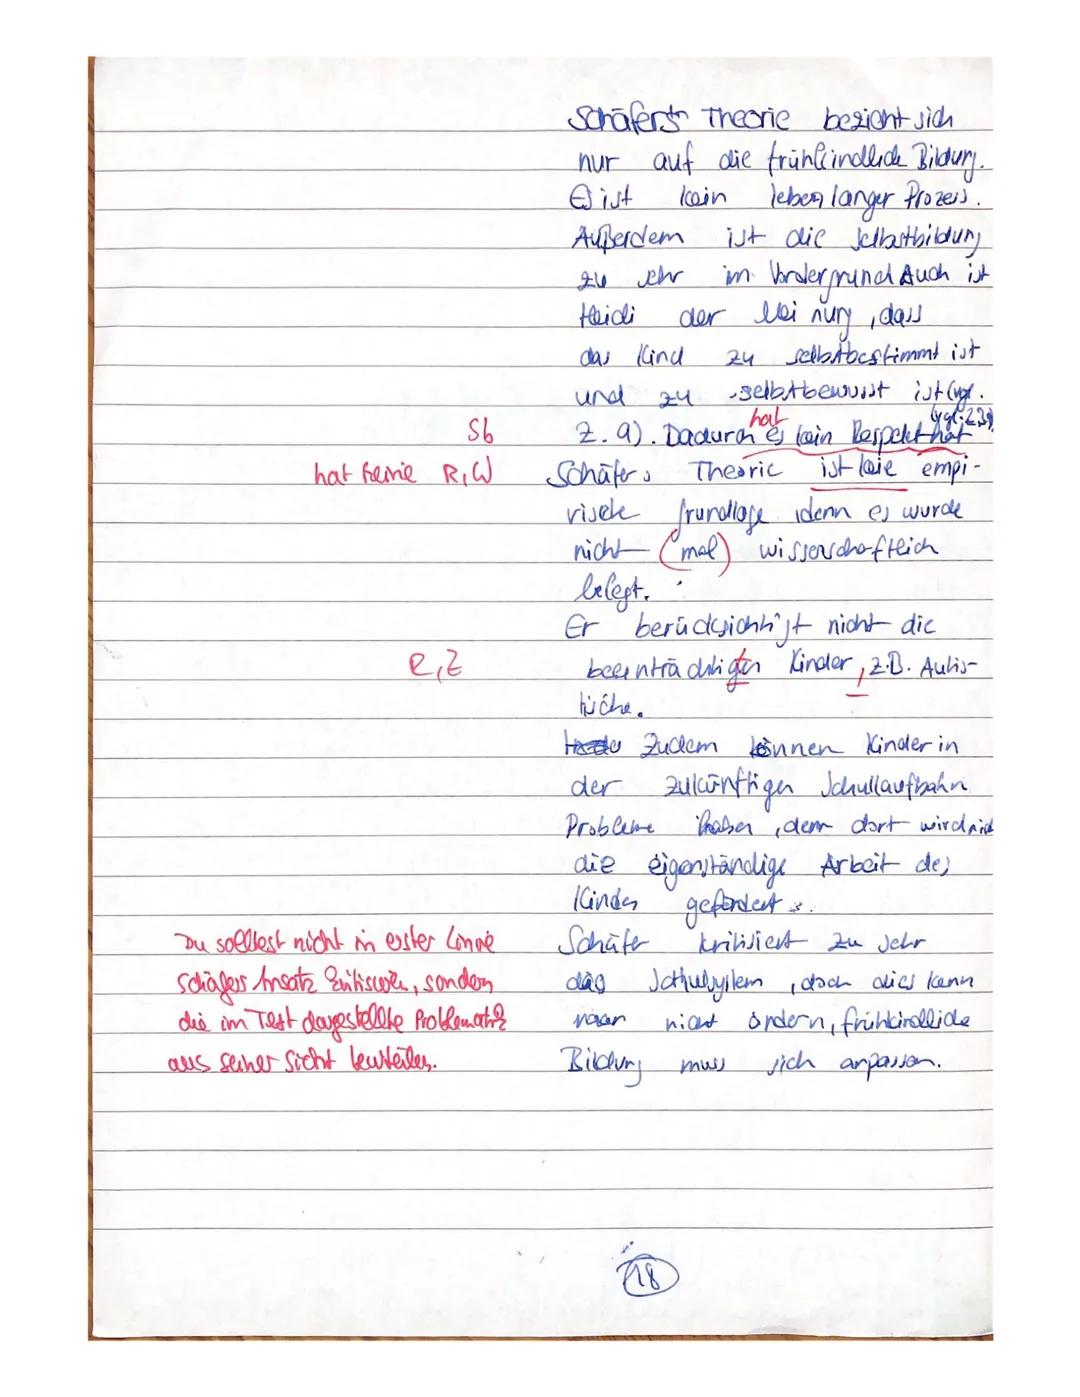 Schäfers Theorie bezieht sich
nur auf die frühkindliche Bildung.
Es ist kein lebenslanger Prozess.
Außerdem ist die Selbstbildung
zu sehr im Vordergrund Auch ist
Heidi der Meinung, dass
das Kind zu selbstbestimmt ist
und zu selbstbewusst ist (vgl.
hat
Sb Z. 9). Dadurch es kein Respekt hat
hat keine R, W Schäfers Theorie ist keie empi-
rische Grundlage, denn es wurde
nicht (mal) wissenschaftlich
belegt.
Er berücksichtigt nicht die
R, Z beeinträchtigten Kinder, z.B. Autis-
tische.
Zudem können Kinder in
der zukünftigen Schullaufbahn
Probleme haben, denn dort wird
die eigenständige Arbeit des
Kindes gefördert.
Du solltest nicht in erster Linie Schäfer kritisiert zu sehr
Schäfers Ansatz kritisieren, sondern das Schulsystem, doch dies kann
die im Text dargestellte Problematik man nicht ändern, frühkindliche
aus seiner Sicht beurteilen. Bildung muss sich anpassen.
18